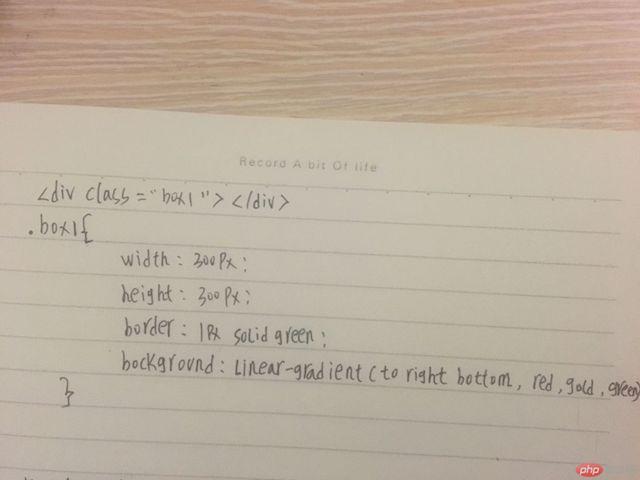 Record A bit Of life
<div class="box1"></div>
.box1{
width: 300px;
height: 300px;
border: 1px solid green;
bockground: Linear-gradient(to right bottom, red, gold, green)
}
php